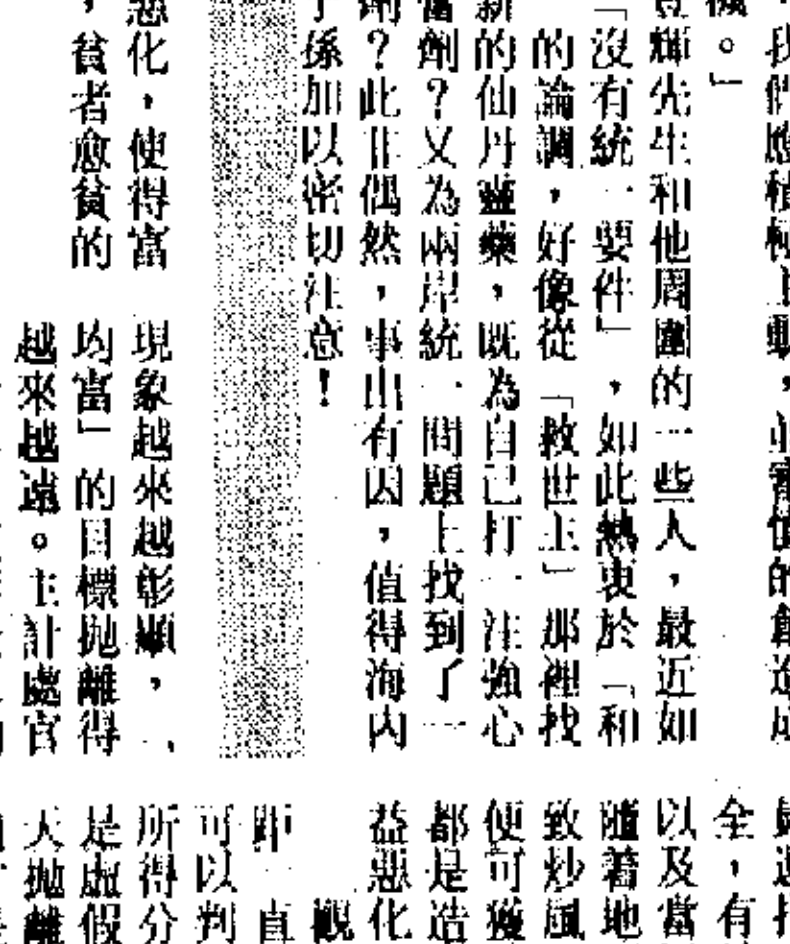 我們應積極主動，並審慎的創造成
機。」
登輝先生和他周圍的一些人，最近如
「沒有統一要件」，如此熱衷於「和
的論調，好像從「救世主」那裡找
新的仙丹靈藥，既為自己打一注強心
劑？又為兩岸統一問題上找到了一
劑？此非偶然，事出有因，值得海內
係加以密切注意！
惡化，使得富
，貧者愈貧的
現象越來越彰顯，
均富」的目標拋離得
越來越遠。主計處官
全，有
以及當
隨着地
致炒風
便可獲
都是造
益惡化
觀
距一直
可以判
所得分
是虛假
天拋離